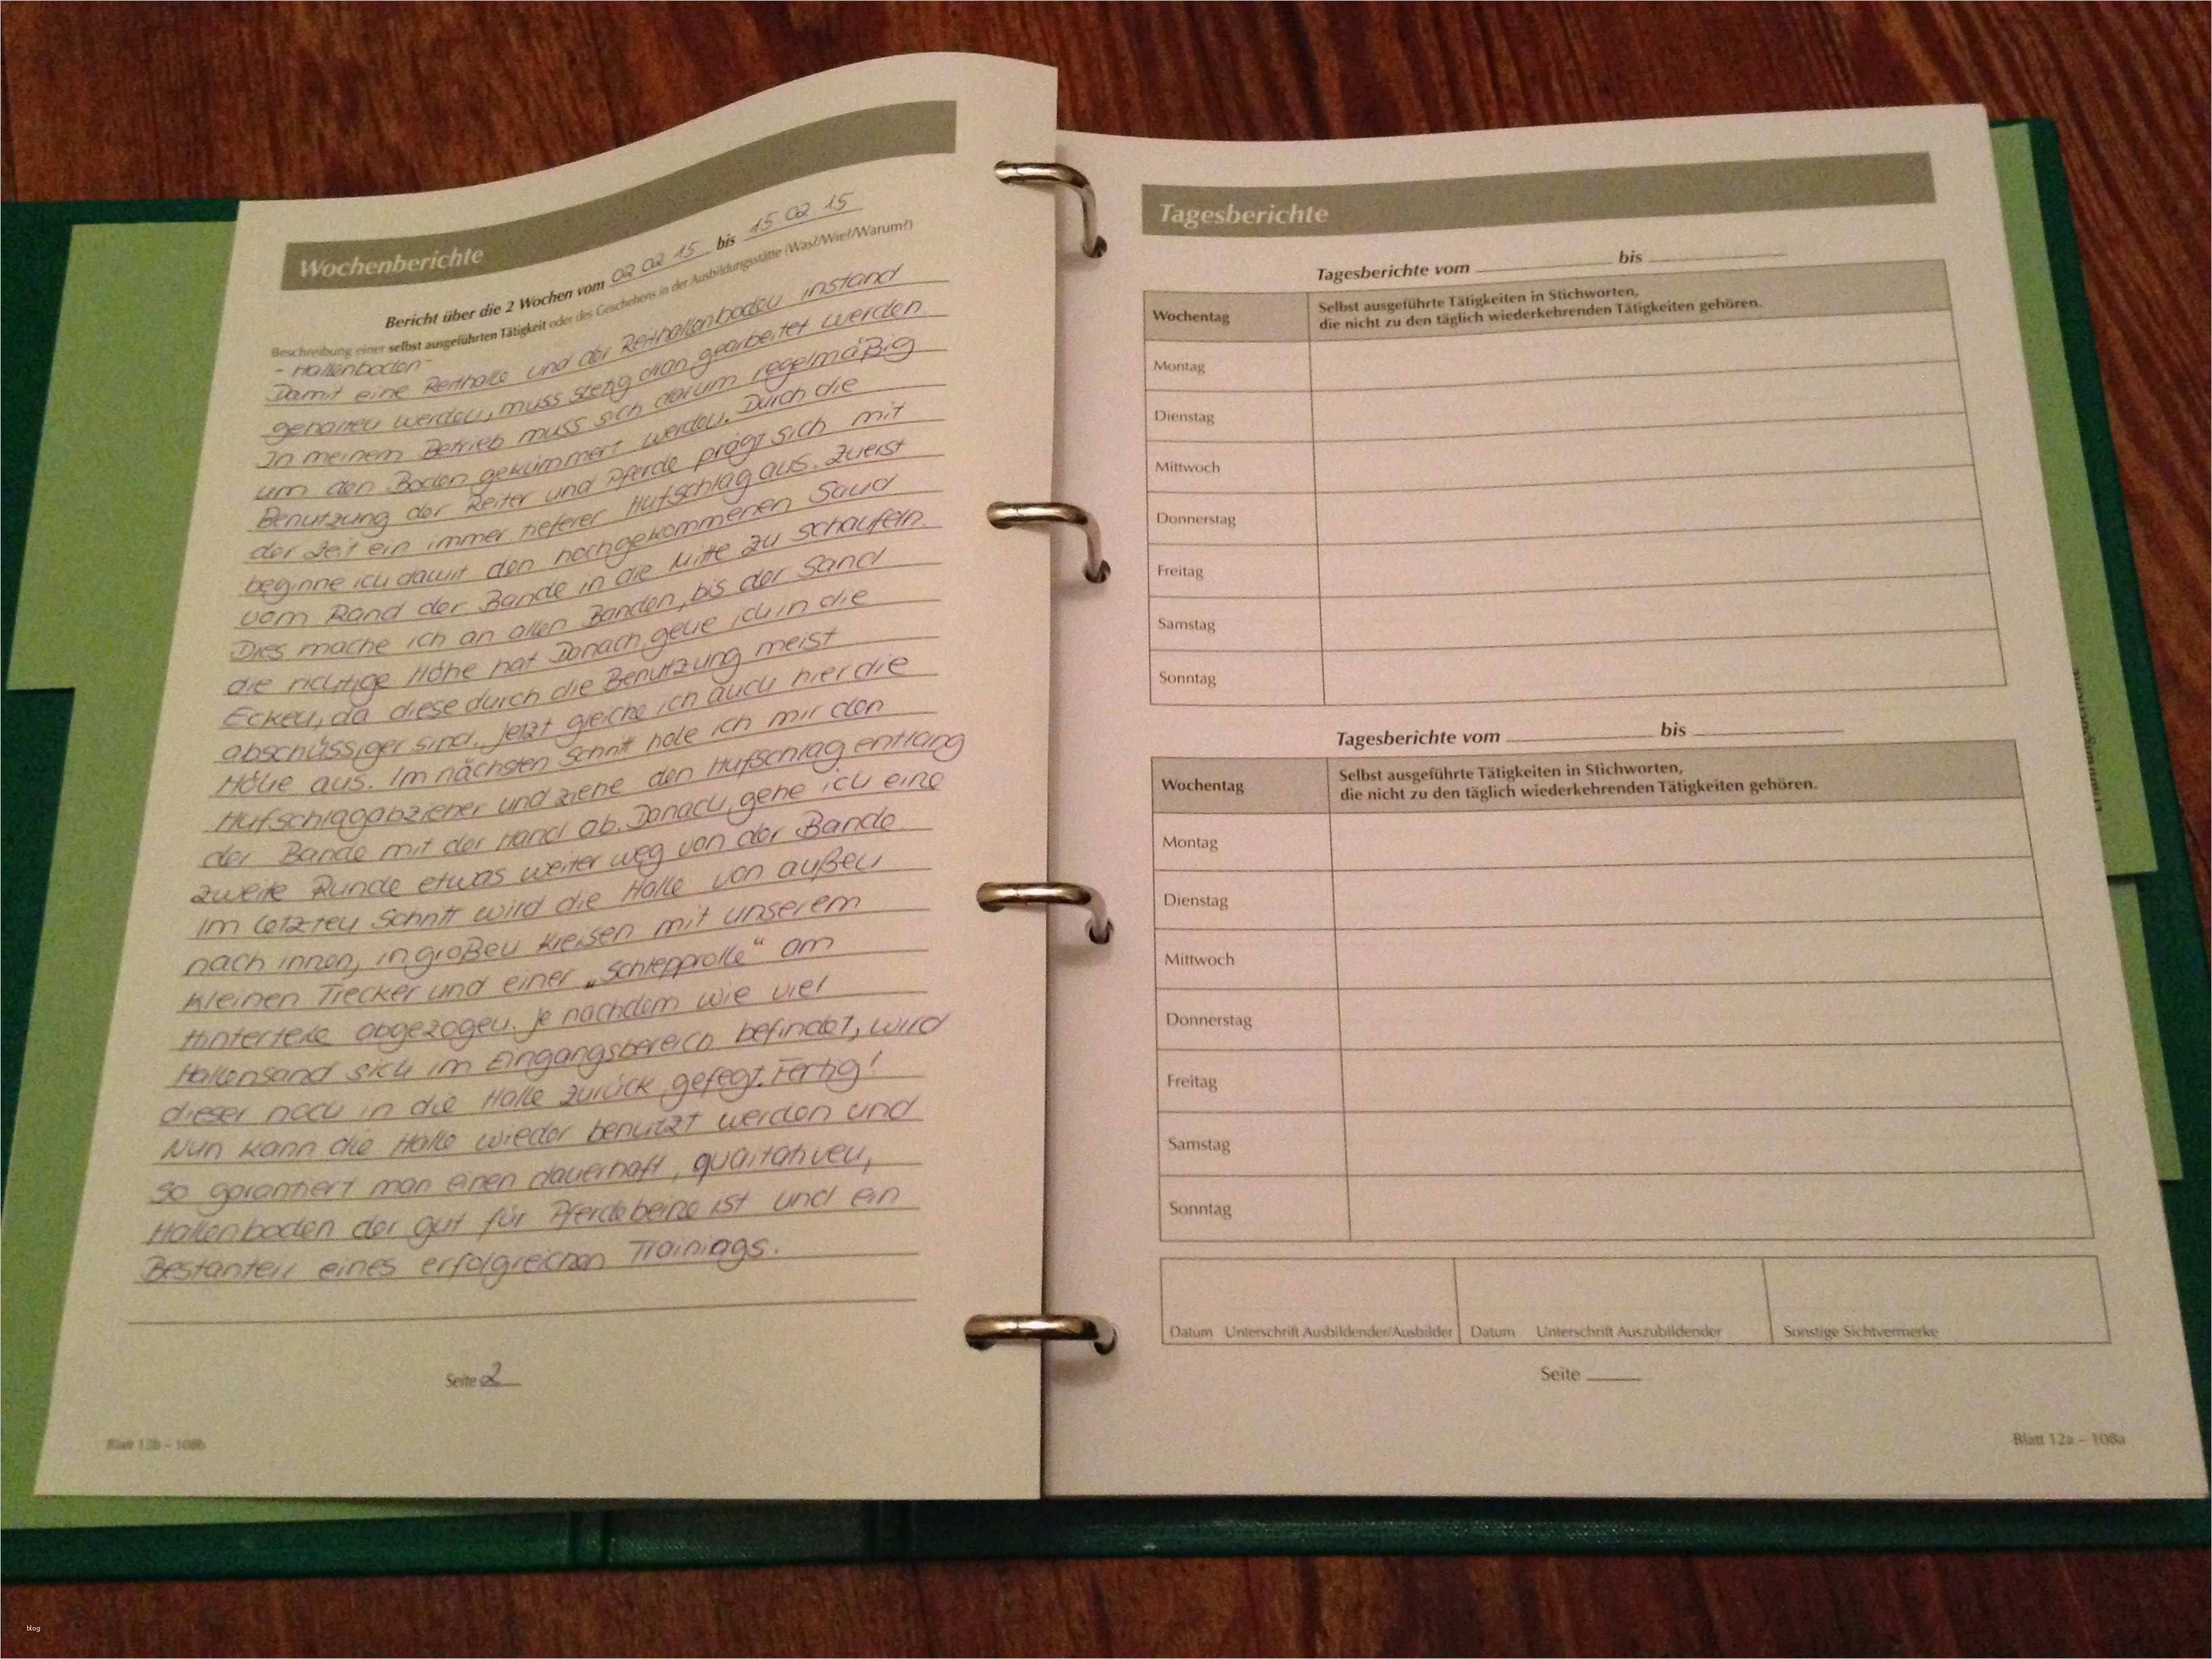 Wochenberichte
Bericht über die 2 Wochen vom 02 02 15 bis 15 02 15
Beschreibung einer selbst ausgeführten Tätigkeit oder des Geschehens in der Ausbildungsstätte (Was?/Wie?/Warum?)
- Hallenboden -
Damit eine Reithalle und der Reithallenboden instand
gehalten werden, muss stetig dran gearbeitet werden.
In meinem Betrieb muss sich darum regelmäßig
um den Boden gekümmert werden. Durch die
Benutzung der Reiter und Pferde prägt sich mit
der Zeit ein immer tieferer Hufschlag aus. Zuerst
beginne ich damit den hochgekommenen Sand
vom Rand der Bande in die Mitte zu schaufeln.
Dies mache ich an allen Banden, bis der Sand
die richtige Höhe hat Danach gehe ich in die
Ecken, da diese durch die Benutzung meist
abschüssiger sind. Jetzt gleiche ich auch hier die
Höhe aus. Im nächsten Schritt hole ich mir den
Hufschlagabzieher und ziehe den Hufschlag entlang
der Bande mit der Hand ab. Danach gehe ich eine
zweite Runde etwas weiter weg von der Bande.
Im letzten Schritt wird die Halle von außen
nach innen, in großen Kreisen mit unserem
kleinen Trecker und einer „Schlepprolle“ am
Hinterteile abgezogen. Je nachdem wie viel
Hallensand sich im Eingangsbereich befindet, wird
dieser noch in die Halle zurück gefegt. Fertig!
Nun kann die Halle wieder benutzt werden und
so garantiert man einen dauerhaft, qualitativen,
Hallenboden der gut für Pferdebeine ist und ein
Bestanteil eines erfolgreichen Trainings.
Seite 2
Blatt 12b – 108b
Tagesberichte
Tagesberichte vom bis
Wochentag Selbst ausgeführte Tätigkeiten in Stichworten,
die nicht zu den täglich wiederkehrenden Tätigkeiten gehören.
Montag
Dienstag
Mittwoch
Donnerstag
Freitag
Samstag
Sonntag
Tagesberichte vom bis
Wochentag Selbst ausgeführte Tätigkeiten in Stichworten,
die nicht zu den täglich wiederkehrenden Tätigkeiten gehören.
Montag
Dienstag
Mittwoch
Donnerstag
Freitag
Samstag
Sonntag
Datum Unterschrift Ausbildender/Ausbilder Datum Unterschrift Auszubildender Sonstige Sichtvermerke
Seite
Blatt 12a – 108a
blog